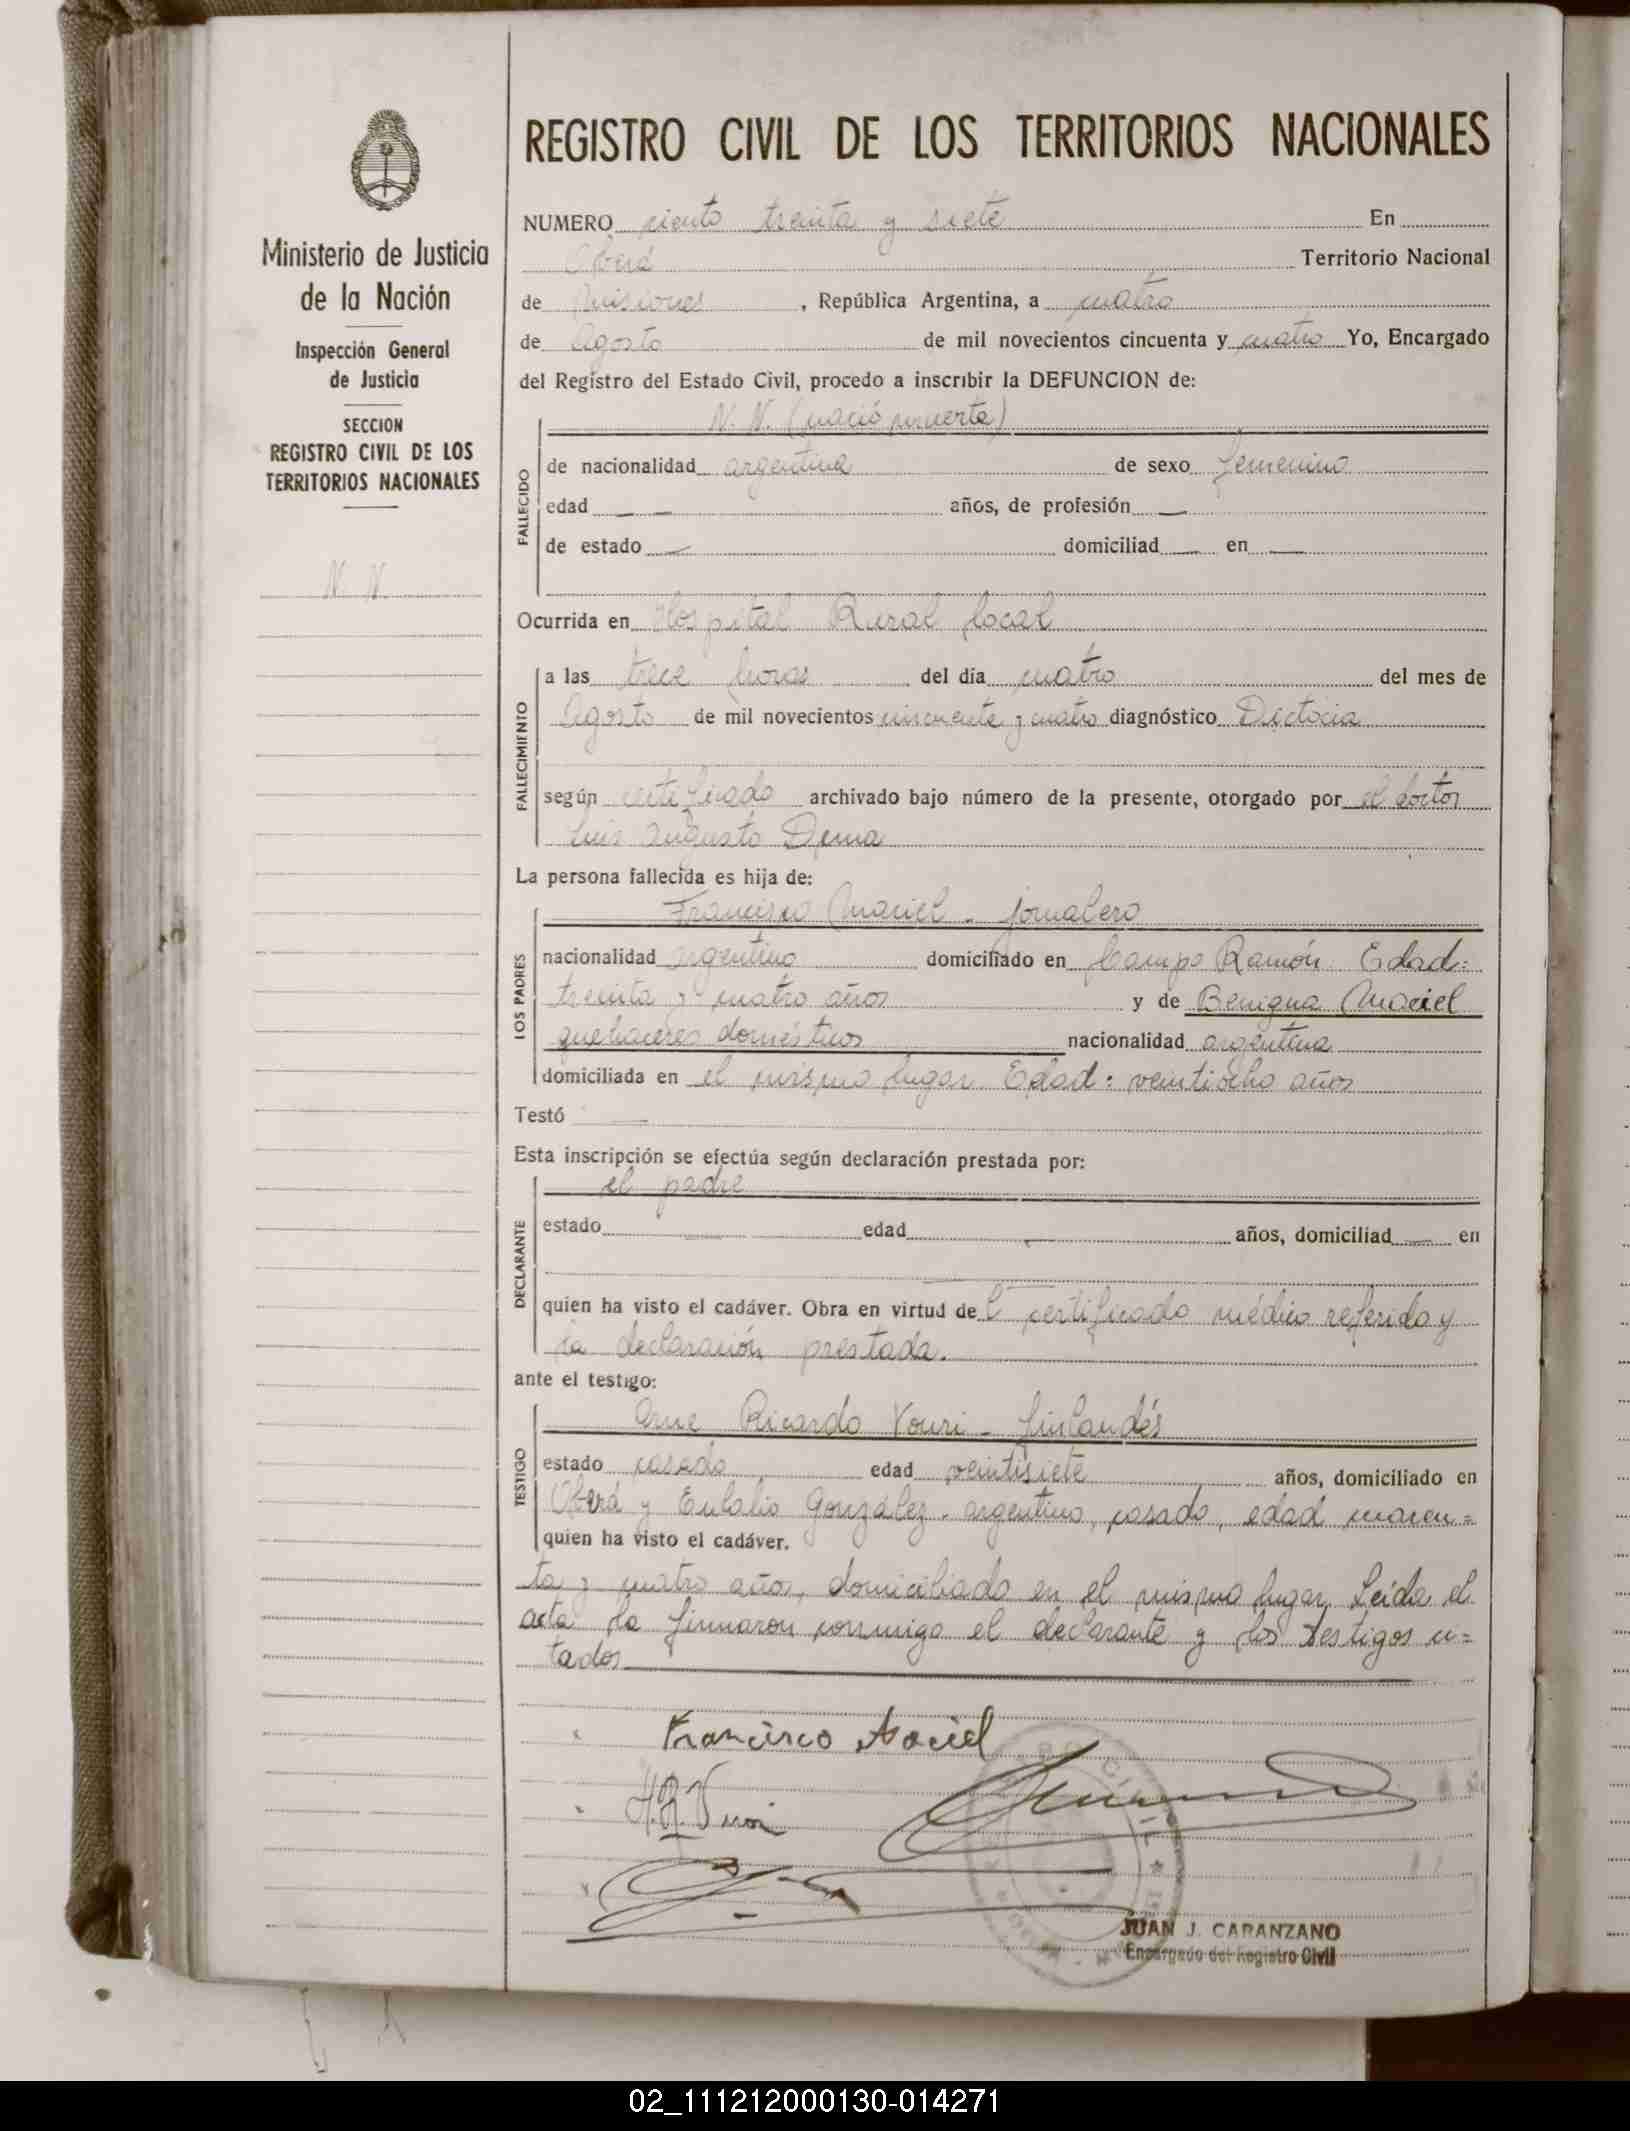 Ministerio de Justicia
de la Nación
Inspección General
de Justicia
SECCION
REGISTRO CIVIL DE LOS
TERRITORIOS NACIONALES
N. N.
REGISTRO CIVIL DE LOS TERRITORIOS NACIONALES
NUMERO ciento treinta y siete En
Oberá Territorio Nacional
de Misiones, República Argentina, a cuatro
de Agosto de mil novecientos cincuenta y cuatro Yo, Encargado
del Registro del Estado Civil, procedo a inscribir la DEFUNCION de:
N. N. (nació muerta)
FALLECIDO
de nacionalidad argentina de sexo femenino
edad — — años, de profesión —
de estado — domiciliad — en —
Ocurrida en Hospital Rural local
FALLECIMIENTO
a las trece horas del día cuatro del mes de
Agosto de mil novecientos cincuenta y cuatro diagnóstico Dictocia
según certificado archivado bajo número de la presente, otorgado por el doctor
Luis Augusto Dema
La persona fallecida es hija de:
LOS PADRES
Francisco Maciel - jornalero
nacionalidad argentino domiciliado en Campo Ramón. Edad:
treinta y cuatro años y de Benigna Maciel
quehaceres domésticos nacionalidad argentina
domiciliada en el mismo lugar Edad: veintiocho años
Testó —
Esta inscripción se efectúa según declaración prestada por:
DECLARANTE
el padre
estado — edad — años, domiciliad — en
quien ha visto el cadáver. Obra en virtud del certificado médico referido y
la declaración prestada.
ante el testigo:
TESTIGO
Arne Ricardo Vouri - finlandés
estado casado edad veintisiete años, domiciliado en
Oberá y Eulalio González - argentino, casado, edad cuaren=
quien ha visto el cadáver.
ta y cuatro años, domiciliado en el mismo lugar. Leída el
acta la firmaron conmigo el declarante y los testigos ci=
tados
Francisco Maciel
JUAN J. CARANZANO
Encargado del Registro Civil
02_111212000130-014271